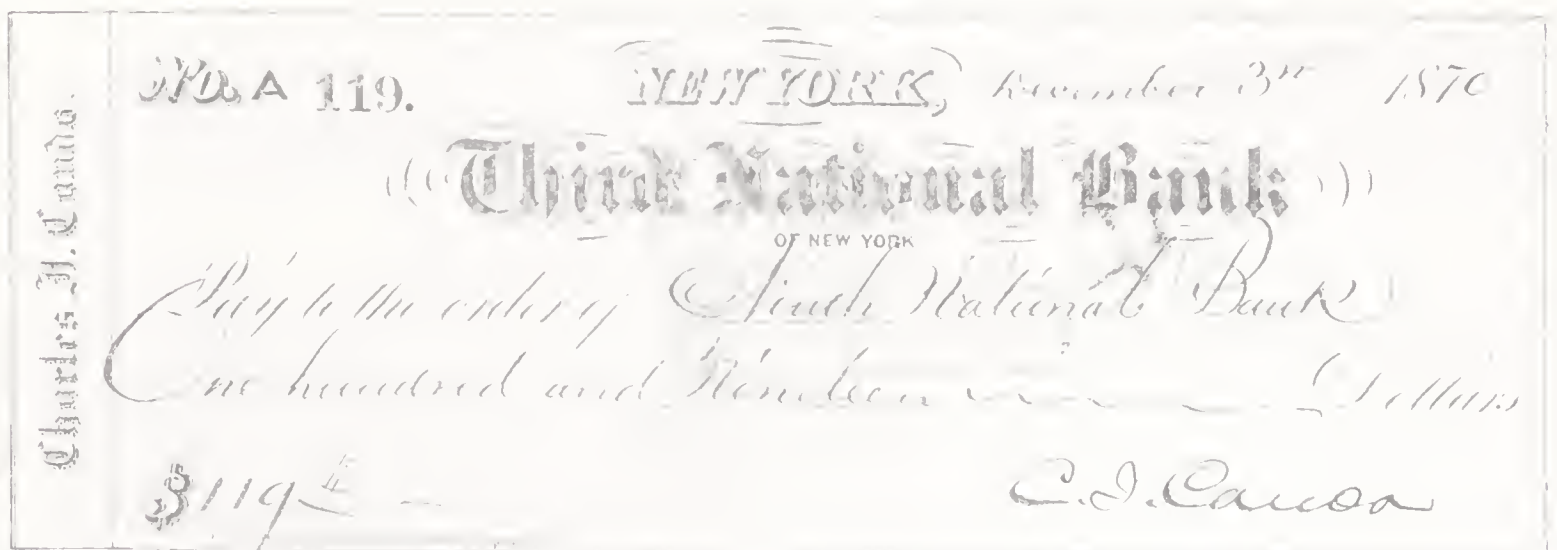 Charles J. Canda.
No. A 119.
NEW YORK, December 3rd 1870
Third National Bank
OF NEW YORK
Pay to the order of Ninth National Bank
One hundred and Nineteen Dollars
$119
C. J. Canda